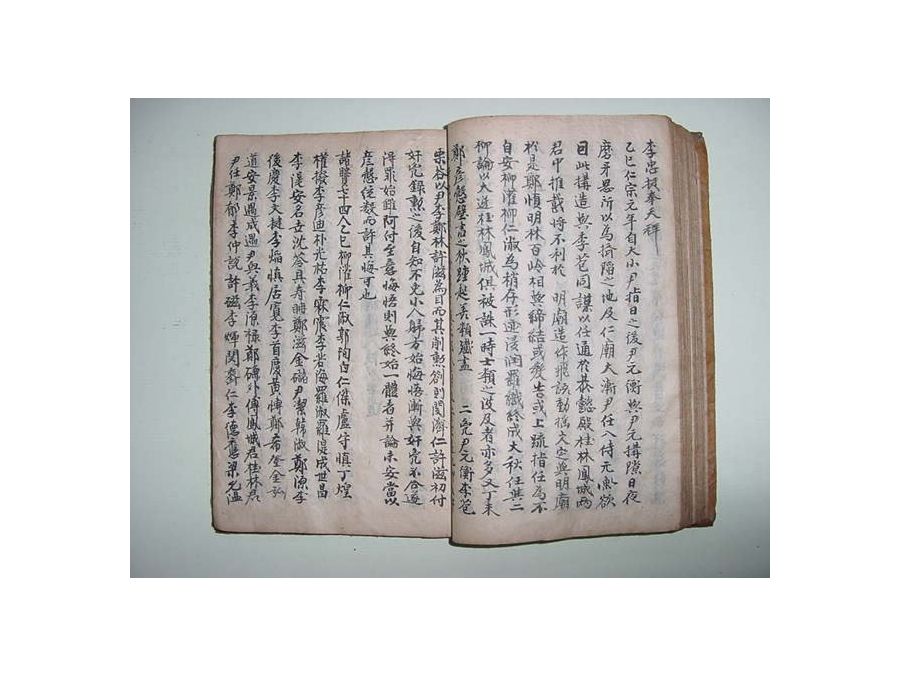 李忠挺奉天祥
乙巳仁宗元年自大小尹指目之後尹元衡與尹元搆隙日夜
磨牙思所以為擠陷之地及仁廟大漸尹任入侍元衡欲
因此搆造與李芑同謀以任通於恭懿殿桂林鳳城兩
君中推戴將不利於 明廟造作飛該動搖文定與明廟
於是鄭順明林百岭相與締結或發告或上疏指任為不
自安柳灌柳仁淑為稍存形迹浸潤羅織終成大秋任其二
柳論以大逆桂林鳳城俱被誅一時士類之波及者亦多又丁未
鄭彦慤壁書之秋踵起善類殲盡 二兇尹元衡李芑
栗谷以尹李鄭林許磁為目而其削勲劄則閔濟仁許滋初付
奸兇錄勲之後自知不免小人歸方始悔悟漸與奸兇不合逐
得罪始雖阿付至尋悔悟則與終始一體者并論未安當以
彦慤徃數而許其悔可也
諸賢七十四人乙巳柳灌柳仁淑郭珣白仁傑盧守愼丁熿
權撥李彦迪朴光祐李霖震李若海羅淑羅湜成世昌
李湜安名世沈苓具寿聃鄭滋金䃴尹潔韓淑鄭源李
後慶李文楗李焰愼居寬李首慶黃愽鄭希登金弘
道安景遇成遇尹興義李源祿鄭礎外傅鳳城君桂林君
尹任鄭郁李仲說許磁李煇閔齊仁李德應梁允溫